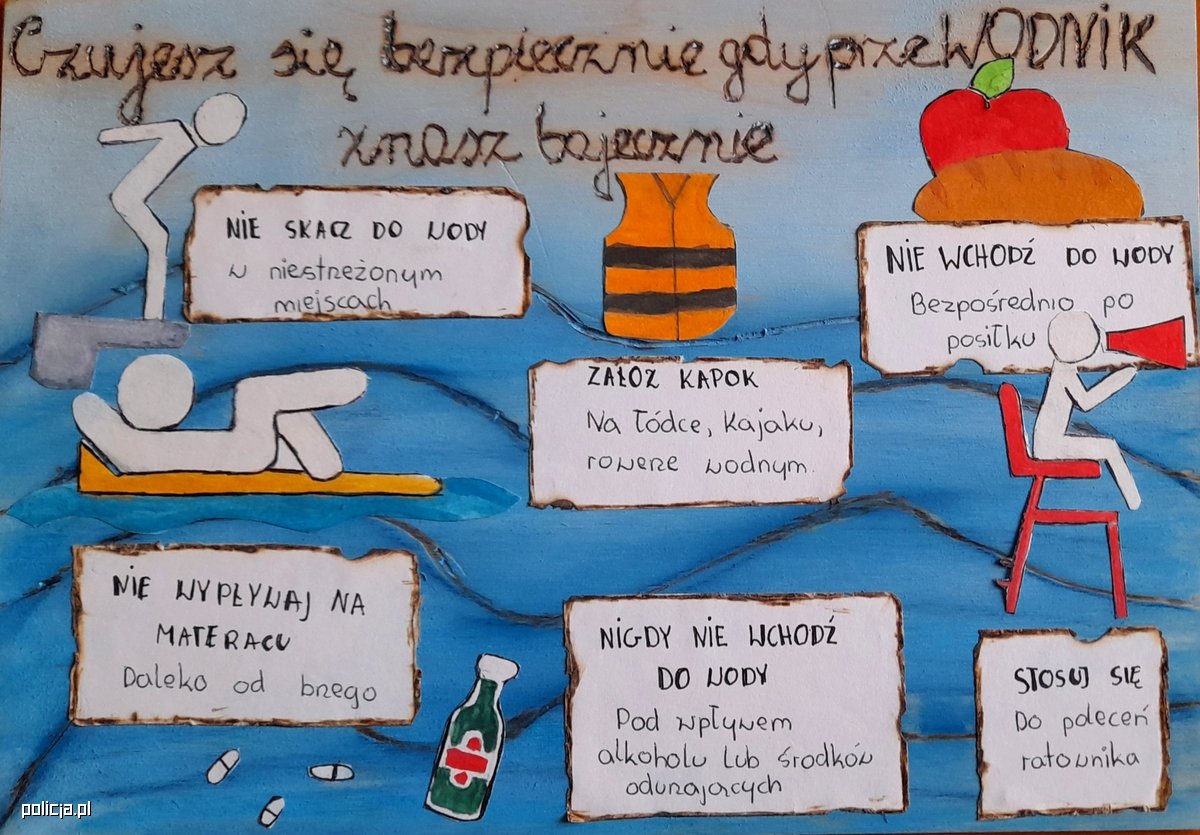 Czujesz się bezpiecznie gdy przeWODNIK
znasz bajecznie
NIE SKACZ DO WODY
w niestrzeżonym
miejscach
NIE WCHODŹ DO WODY
Bezpośrednio po
posiłku
ZAŁOZ KAPOK
Na łódce, kajaku,
rowerze wodnym.
NIE WYPŁYWAJ NA
MATERACU
Daleko od brzego
NIGDY NIE WCHODŹ
DO WODY
Pod wpływem
alkoholu lub środków
odurzających
STOSUJ SIĘ
Do poleceń
ratownika
policja.pl